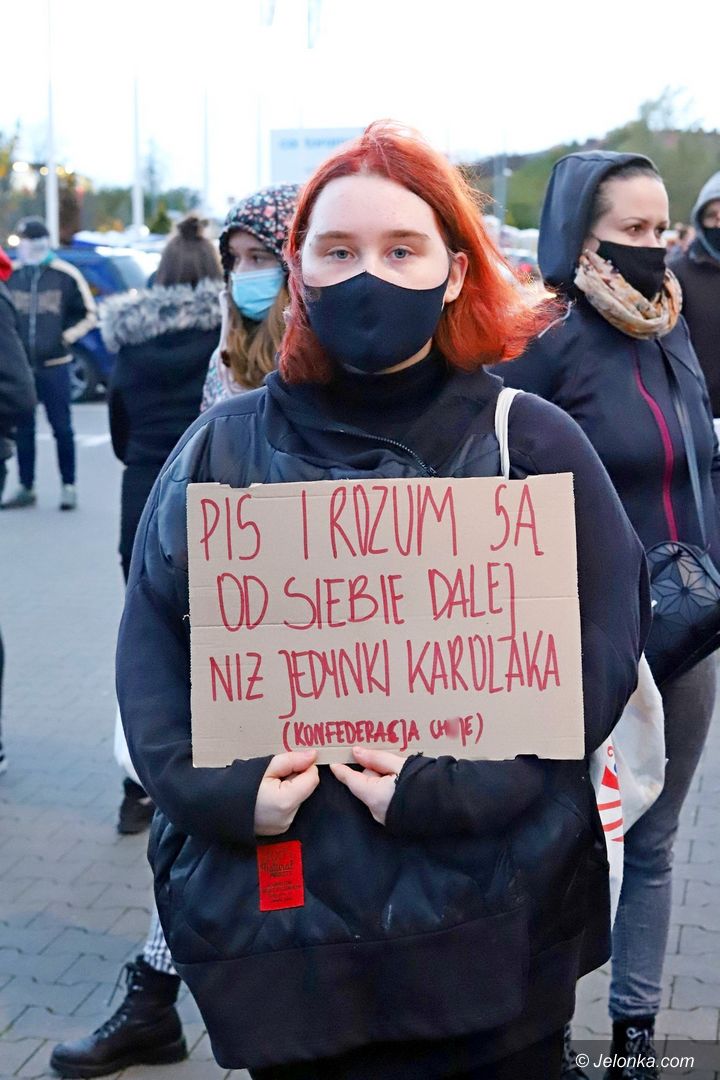 PIS I ROZUM SĄ
OD SIEBIE DALEJ
NIŻ JEDYNKI KAROLAKA
(KONFEDERACJA
© Jelonka.com